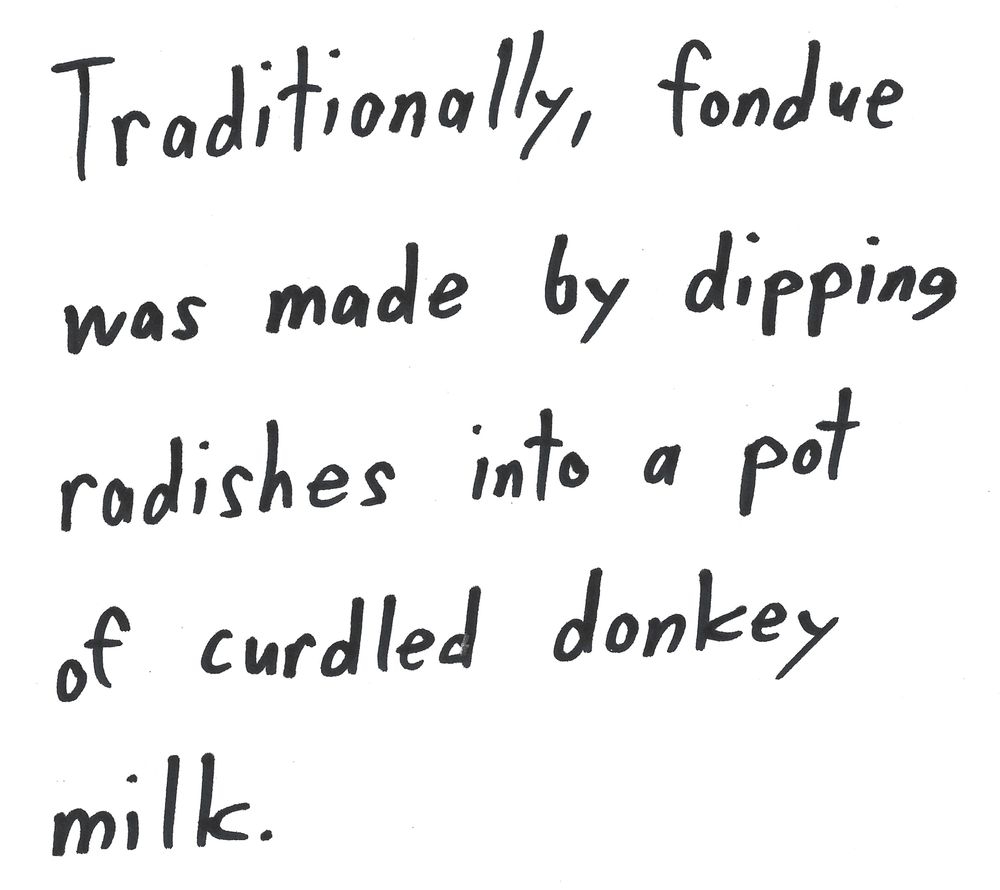 Traditionally, fondue
was made by dipping
radishes into a pot
of curdled donkey
milk.